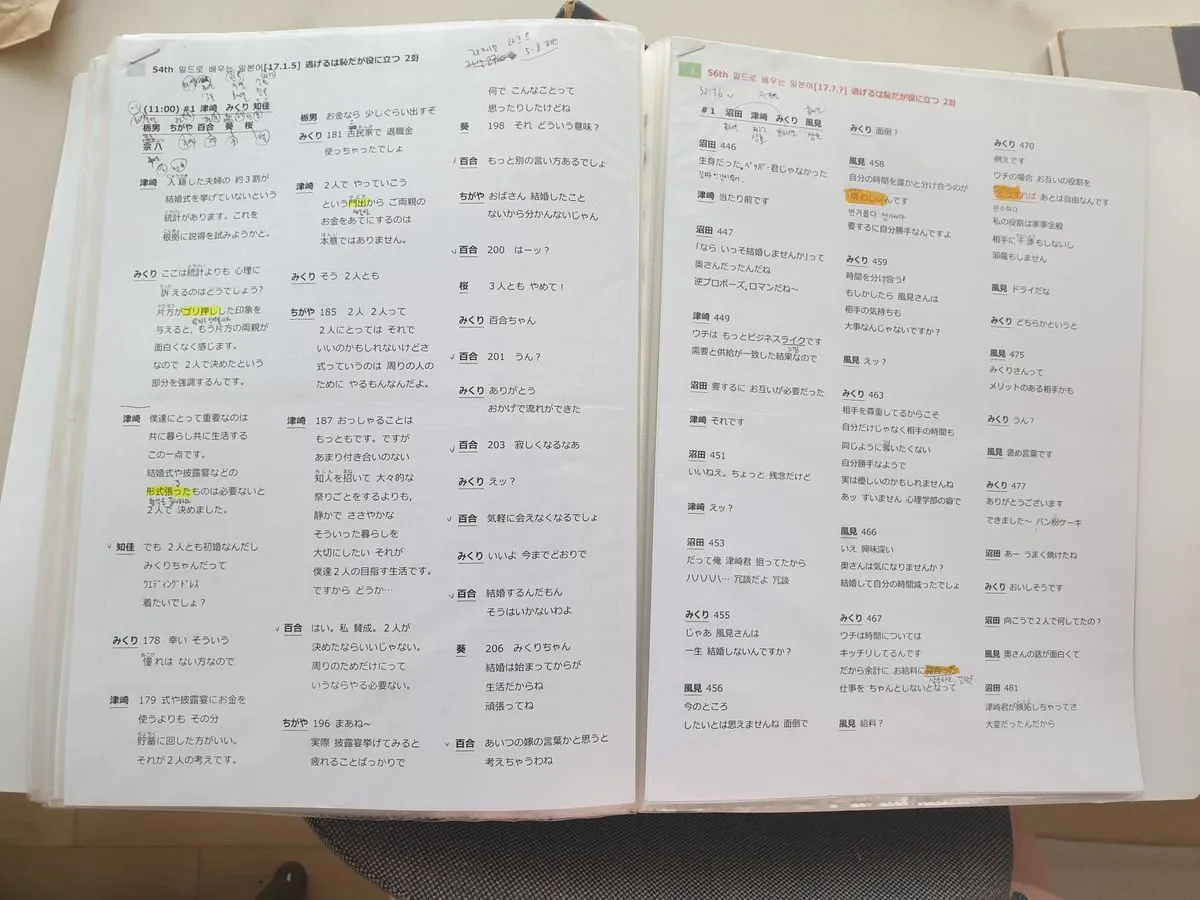 54th 일드로 배우는 일본어[17.1.5] 逃げるは恥だが役に立つ 2화
5-8
(11:00) #1 津崎 みくり 知佳
栃男 ちがや 百合 葵 桜
宗八
津崎 入籍した夫婦の 約3割が
結婚式を挙げていないという
統計があります。これを
根拠に説得を試みようかと。
みくり ここは統計よりも 心理に
訴えるのはどうでしょう?
片方がゴリ押しした印象を
与えると, もう片方の両親が
面白くなく感じます。
なので 2人で決めたという
部分を強調するんです。
津崎 僕達にとって重要なのは
共に暮らし共に生活する
この一点です。
結婚式や披露宴などの
形式張ったものは必要ないと
2人で 決めました。
知佳 でも 2人とも初婚なんだし
みくりちゃんだって
ウエディングドレス
着たいでしょ?
みくり 178 幸い そういう
憧れは ない方なので
津崎 179 式や披露宴にお金を
使うよりも その分
貯蓄に回した方がいい。
それが2人の考えです。
栃男 お金なら 少しぐらい出すぞ
みくり 181 古民家で 退職金
使っちゃったでしょ
津崎 2人で やっていこう
という門出から ご両親の
お金をあてにするのは
本意ではありません。
みくり そう 2人とも
ちがや 185 2人 2人って
2人にとっては それで
いいのかもしれないけどさ
式っていうのは 周りの人の
ために やるもんなんだよ。
津崎 187 おっしゃることは
もっともです。ですが
あまり付き合いのない
知人を招いて 大々的な
祭りごとをするよりも,
静かで ささやかな
そういった暮らしを
大切にしたい それが
僕達2人の目指す生活です。
ですから どうか…
百合 はい。私 賛成。2人が
決めたならいいじゃない。
周りのためだけにって
いうならやる必要ない。
ちがや 196 まあね~
実際 披露宴挙げてみると
疲れることばっかりで
何で こんなことって
思ったりしたけどね
葵 198 それ どういう意味?
百合 もっと別の言い方あるでしょ
ちがや おばさん 結婚したこと
ないから分かんないじゃん
百合 200 はーッ?
桜 3人とも やめて!
みくり 百合ちゃん
百合 201 うん?
みくり ありがとう
おかげで流れができた
百合 203 寂しくなるなあ
みくり えッ?
百合 気軽に会えなくなるでしょ
みくり いいよ 今までどおりで
百合 結婚するんだもん
そうはいかないわよ
葵 206 みくりちゃん
結婚は始まってからが
生活だからね
頑張ってね
百合 あいつの嫁の言葉かと思うと
考えちゃうわね
1 56th 일드로 배우는 일본어[17.?.?] 逃げるは恥だが役に立つ 2화
32:36
#1 沼田 津崎 みくり 風見
沼田 446
生身だった, ペッパー君じゃなかった
津崎 当たり前です
沼田 447
「なら いっそ結婚しませんか」って
奥さんだったんだね
逆プロポーズ, ロマンだね~
津崎 449
ウチは もっとビジネスライクです
需要と供給が一致した結果なので
沼田 要するに お互いが必要だった
津崎 それです
沼田 451
いいねえ。ちょっと 残念だけど
津崎 えッ?
沼田 453
だって俺 津崎君 狙ってたから
ハハハハ… 冗談だよ 冗談
みくり 455
じゃあ 風見さんは
一生 結婚しないんですか?
風見 456
今のところ
したいとは思えませんね 面倒で
みくり 面倒?
風見 458
自分の時間を誰かと分け合うのが
煩わしいんです
번거롭다 성가시다
要するに自分勝手なんですよ
みくり 459
時間を分け合う!
もしかしたら 風見さんは
相手の気持ちも
大事なんじゃないですか?
風見 えッ?
みくり 463
相手を尊重してるからこそ
自分だけじゃなく相手の時間も
同じように奪いたくない
自分勝手なようで
実は優しいのかもしれませんね
あッ すいません 心理学部の癖で
風見 466
いえ 興味深い
奥さんは気になりませんか?
結婚して自分の時間減ったでしょ
みくり 467
ウチは時間については
キッチリしてるんです
だから余計に お給料に見合った
仕事を ちゃんとしないとなって
風見 給料?
みくり 470
例えです
ウチの場合 お互いの役割を
あとは自由なんです
완수하다
私の役割は家事全般
相手に干渉もしないし
邪魔もしません
風見 ドライだな
みくり どちらかというと
風見 475
みくりさんって
メリットのある相手かも
みくり うん?
風見 褒め言葉です
みくり 477
ありがとうございます
できました~ パン粉ケーキ
沼田 あー うまく焼けたね
みくり おいしそうです
沼田 向こうで2人で何してたの?
風見 奥さんの話が面白くて
沼田 481
津崎君が嫉妬しちゃってさ
大変だったんだから